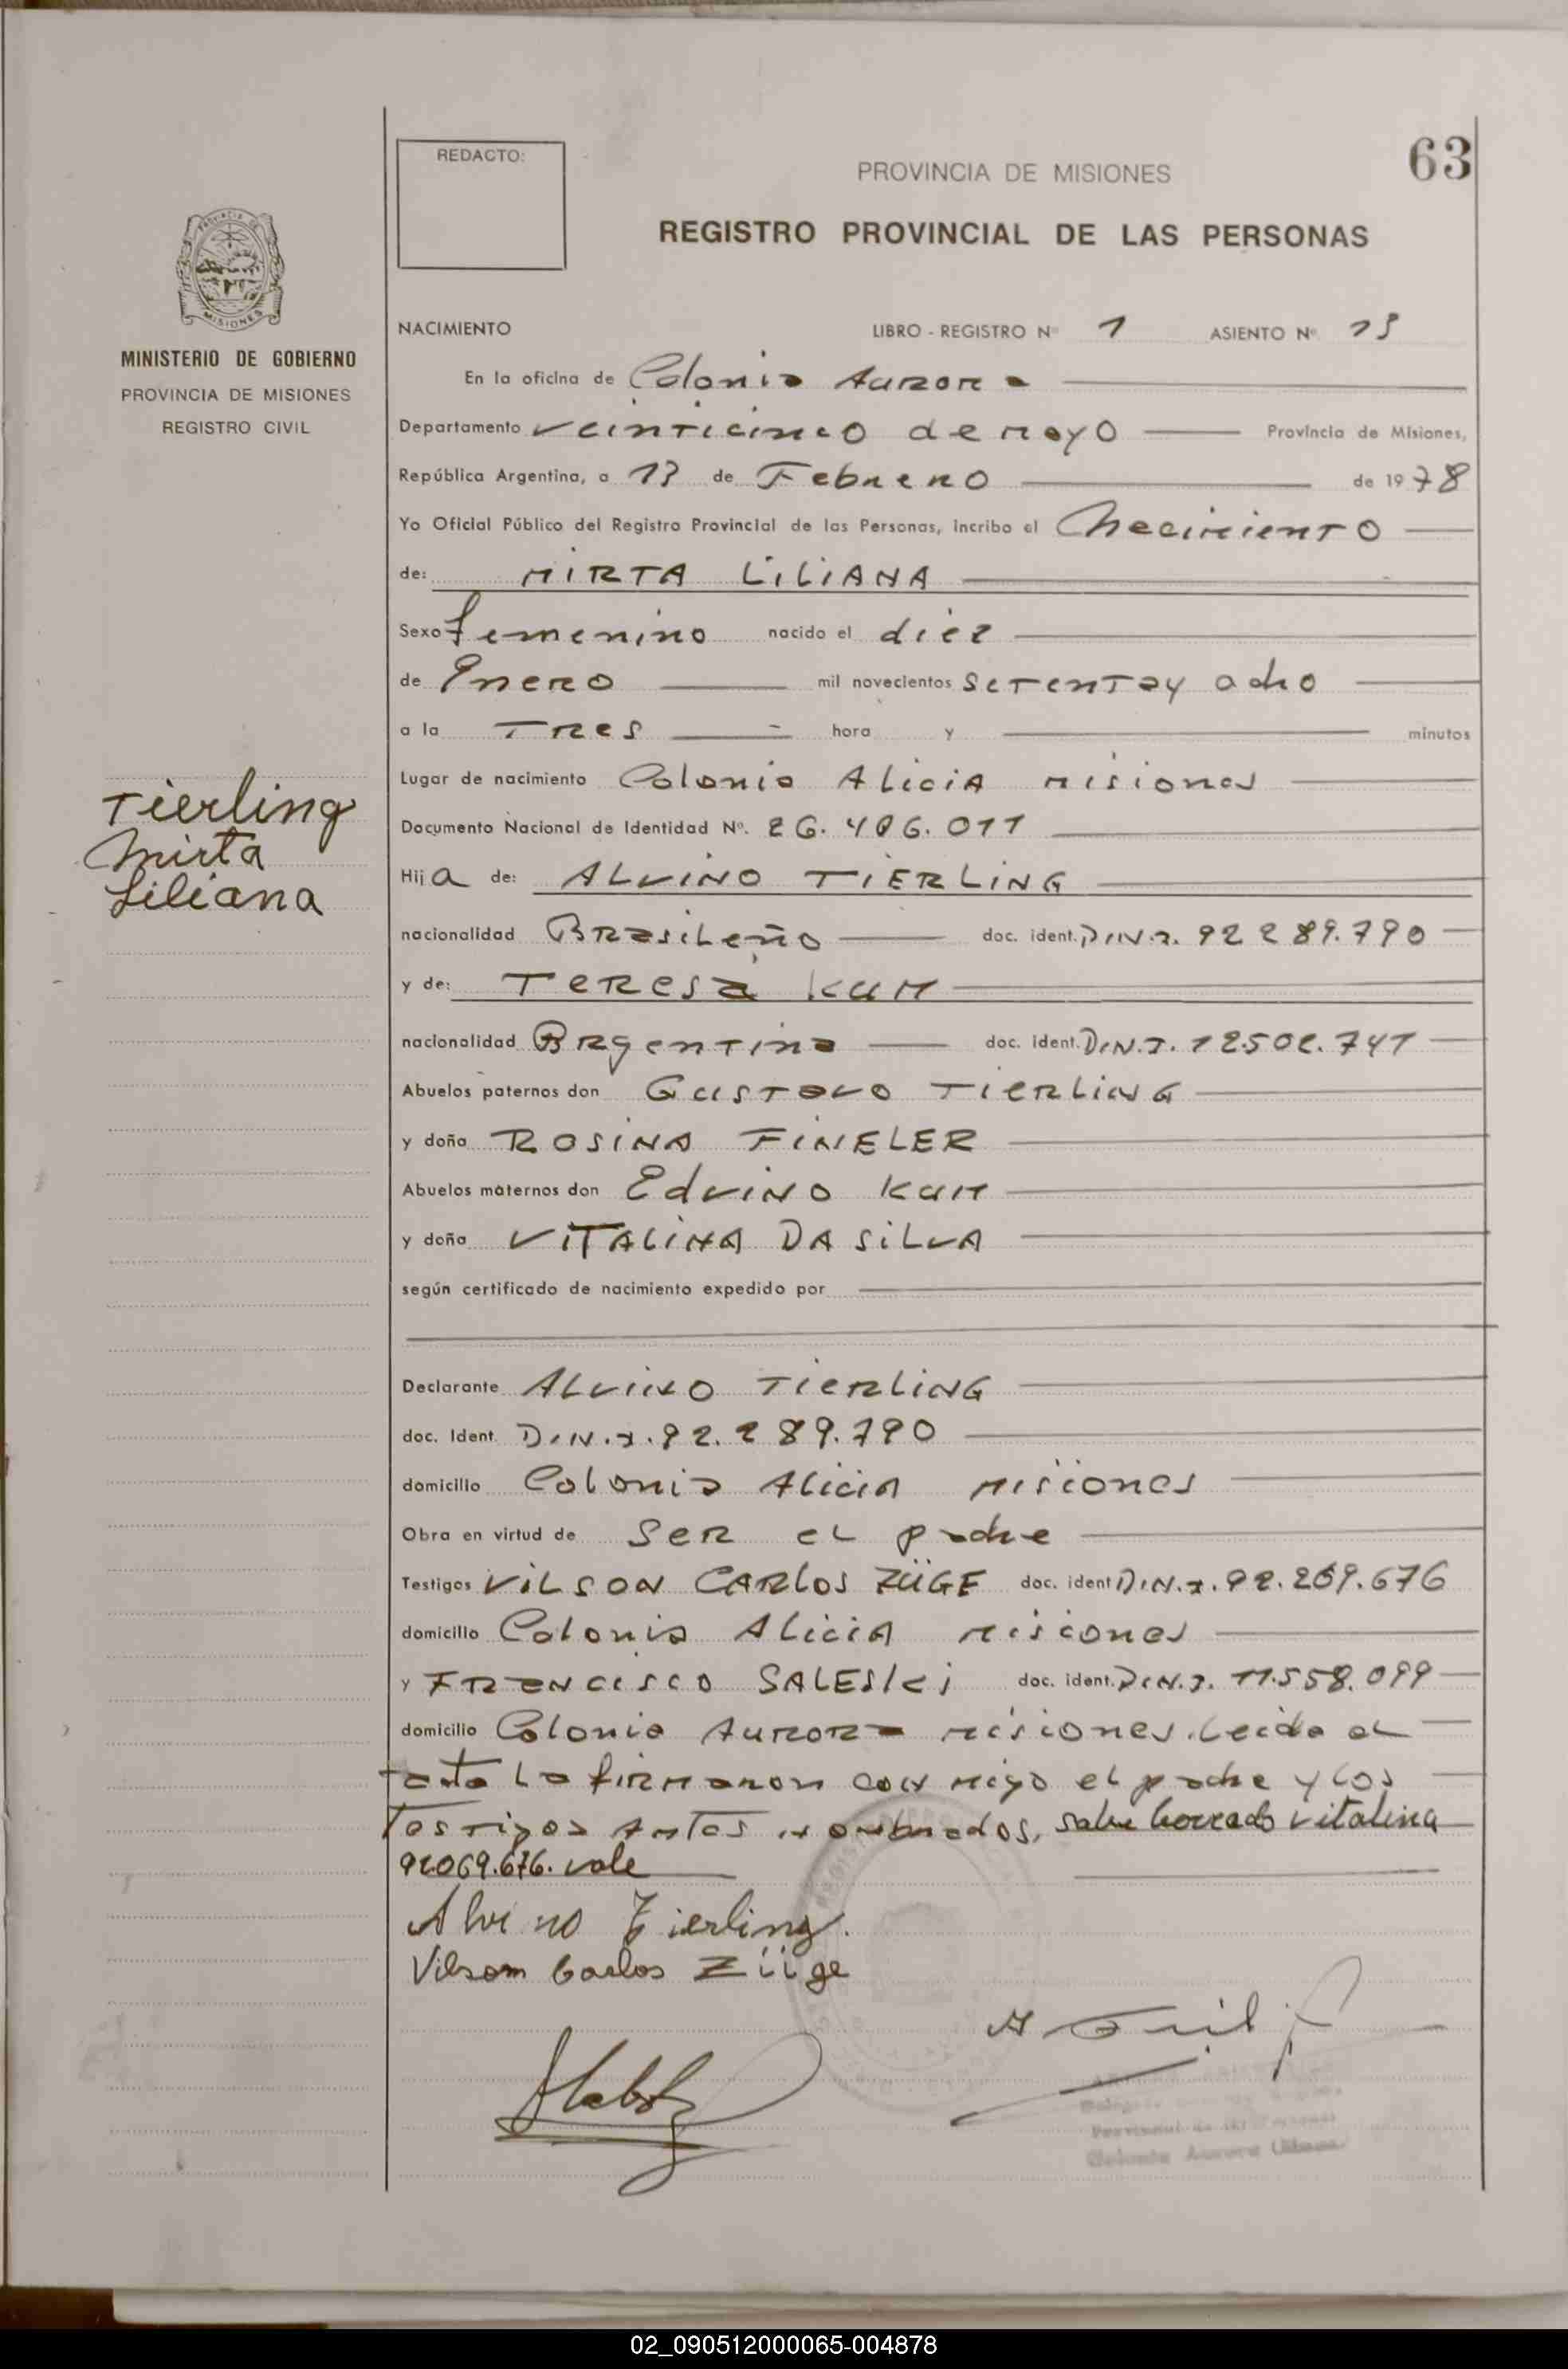 REDACTO:
63
PROVINCIA DE MISIONES
REGISTRO PROVINCIAL DE LAS PERSONAS
MISIONES
MINISTERIO DE GOBIERNO
PROVINCIA DE MISIONES
REGISTRO CIVIL
NACIMIENTO LIBRO - REGISTRO Nº 1 ASIENTO Nº
En la oficina de Colonia Aurora
Departamento veinticinco de mayo Provincia de Misiones,
República Argentina, a 13 de Febrero de 1978
Yo Oficial Público del Registro Provincial de las Personas, incribo el Nacimiento
de: MIRTA LILIANA
Sexo femenino nacido el diez
de Enero mil novecientos setentay ocho
a la Tres hora y minutos
Lugar de nacimiento Colonia Alicia misiones
Documento Nacional de Identidad Nº. 26.406.011
Tierling
Mirta
Liliana
Hija de: ALVINO TIERLING
nacionalidad Brasileño doc. ident. D.N.I. 92 289.790
y de: Teresa KUM
nacionalidad Argentina doc. ident. D.N.I. 12502.741
Abuelos paternos don Gustavo TierLiNG
y doña ROSINA FINELER
Abuelos maternos don EdviNO KUM
y doña VITALINA DA SILVA
según certificado de nacimiento expedido por
Declarante ALVINO TierLiNG
doc. Ident. D.N.I. 92.289.790
domicilio Colonia Alicia misiones
Obra en virtud de Ser el padre
Testigos VILSON CARLOS ZÜGE doc. ident D.N.I. 92.269.676
domicilio Colonia Alicia misiones
y FRANCISCO SALESKi doc. ident. D.N.I. 11.558.099
domicilio Colonia Aurora misiones. Leida el
acta la firmaron con migo el padre y los
Testigos antes nombrados, sobre borrado vitalina
92069.676. vale
Alvino Tierling.
Vilson Carlos Züge
Colonia Aurora
02_090512000065-004878